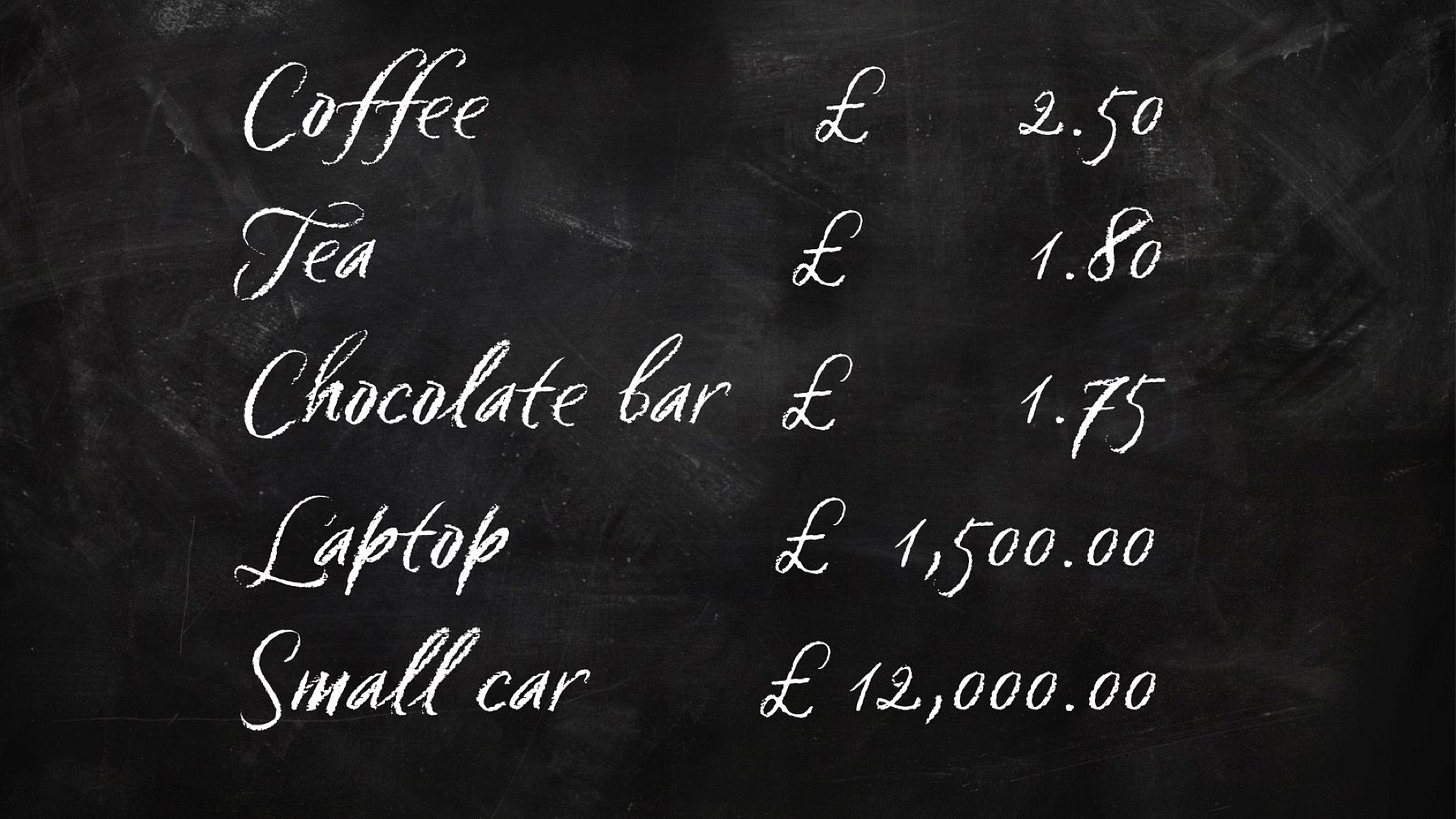 Coffee £ 2.50
Tea £ 1.80
Chocolate bar £ 1.75
Laptop £ 1,500.00
Small car £ 12,000.00